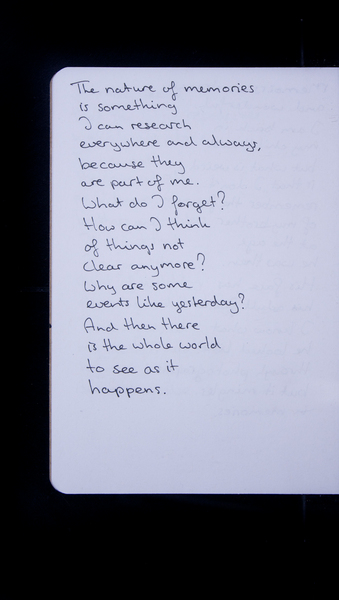 The nature of memories
is something
I can research
everywhere and always,
because they
are part of me.
What do I forget?
How can I think
of things not
clear anymore?
Why are some
events like yesterday?
And then there
is the whole world
to see as it
happens.